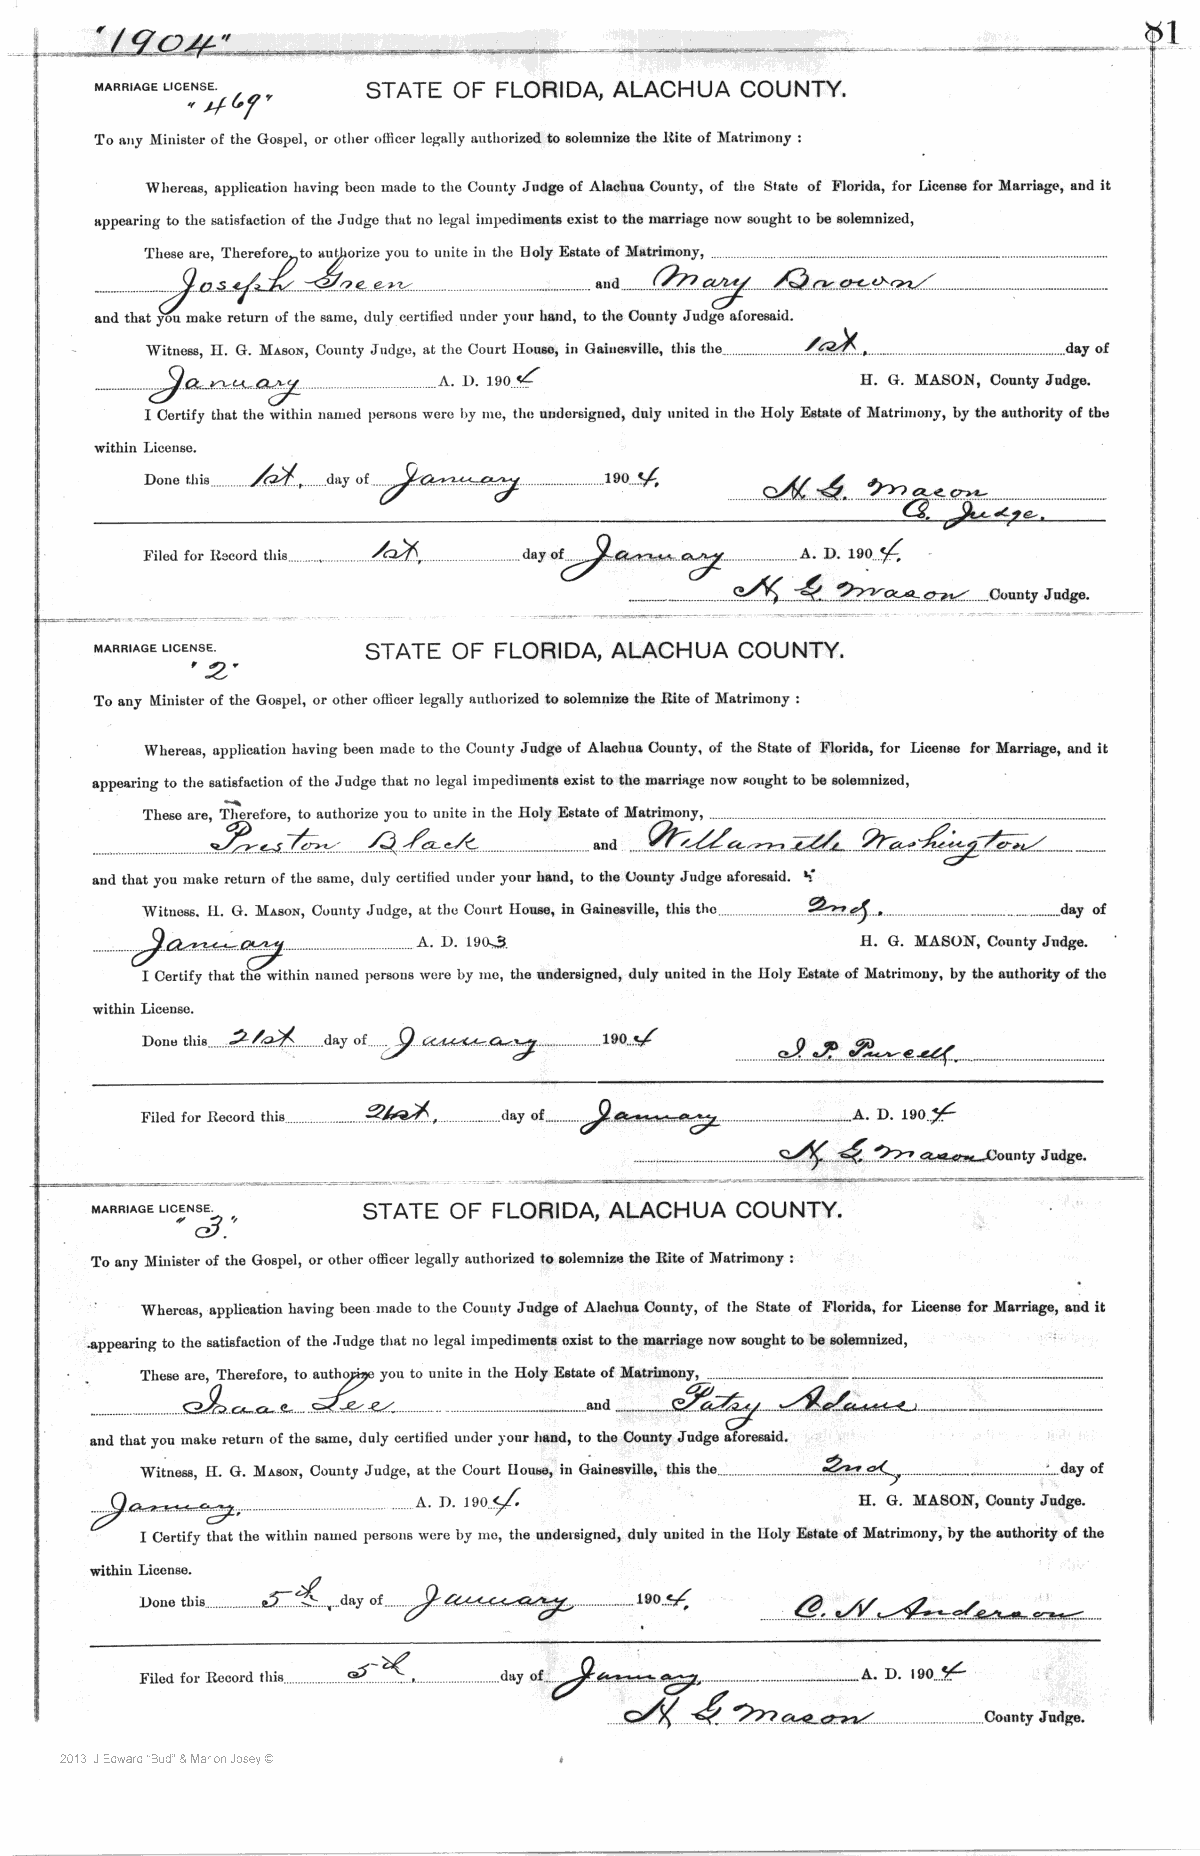 "1904" 81
MARRIAGE LICENSE. STATE OF FLORIDA, ALACHUA COUNTY.
"469"
To any Minister of the Gospel, or other officer legally authorized to solemnize the Rite of Matrimony :
Whereas, application having been made to the County Judge of Alachua County, of the State of Florida, for License for Marriage, and it
appearing to the satisfaction of the Judge that no legal impediments exist to the marriage now sought to be solemnized,
These are, Therefore, to authorize you to unite in the Holy Estate of Matrimony,
Joseph Green and Mary Brown
and that you make return of the same, duly certified under your hand, to the County Judge aforesaid.
Witness, H. G. MASON, County Judge, at the Court House, in Gainesville, this the 1st, day of
January A. D. 1904 H. G. MASON, County Judge.
I Certify that the within named persons were by me, the undersigned, duly united in the Holy Estate of Matrimony, by the authority of the
within License.
Done this 1st, day of January 1904. H. G. Mason
Co. Judge.
Filed for Record this 1st, day of January A. D. 1904.
H. G. Mason County Judge.
MARRIAGE LICENSE. STATE OF FLORIDA, ALACHUA COUNTY.
"2"
To any Minister of the Gospel, or other officer legally authorized to solemnize the Rite of Matrimony :
Whereas, application having been made to the County Judge of Alachua County, of the State of Florida, for License for Marriage, and it
appearing to the satisfaction of the Judge that no legal impediments exist to the marriage now sought to be solemnized,
These are, Therefore, to authorize you to unite in the Holy Estate of Matrimony,
Preston Black and Willamette Washington
and that you make return of the same, duly certified under your hand, to the County Judge aforesaid.
Witness, H. G. MASON, County Judge, at the Court House, in Gainesville, this the 2nd, day of
January A. D. 1903 H. G. MASON, County Judge.
I Certify that the within named persons were by me, the undersigned, duly united in the Holy Estate of Matrimony, by the authority of the
within License.
Done this 21st day of January 1904 I. P. Purcell.
Filed for Record this 21st, day of January A. D. 1904
H. G. Mason County Judge.
MARRIAGE LICENSE. STATE OF FLORIDA, ALACHUA COUNTY.
"3."
To any Minister of the Gospel, or other officer legally authorized to solemnize the Rite of Matrimony :
Whereas, application having been made to the County Judge of Alachua County, of the State of Florida, for License for Marriage, and it
appearing to the satisfaction of the Judge that no legal impediments exist to the marriage now sought to be solemnized,
These are, Therefore, to authorize you to unite in the Holy Estate of Matrimony,
Isaac Lee and Patsy Adams
and that you make return of the same, duly certified under your hand, to the County Judge aforesaid.
Witness, H. G. MASON, County Judge, at the Court House, in Gainesville, this the 2nd, day of
January, A. D. 1904. H. G. MASON, County Judge.
I Certify that the within named persons were by me, the undersigned, duly united in the Holy Estate of Matrimony, by the authority of the
within License.
Done this 5th, day of January 1904. C. H Anderson
Filed for Record this 5th, day of January, A. D. 1904
H. G. Mason County Judge.
2013 J Edward "Bud" & Marion Josey ©